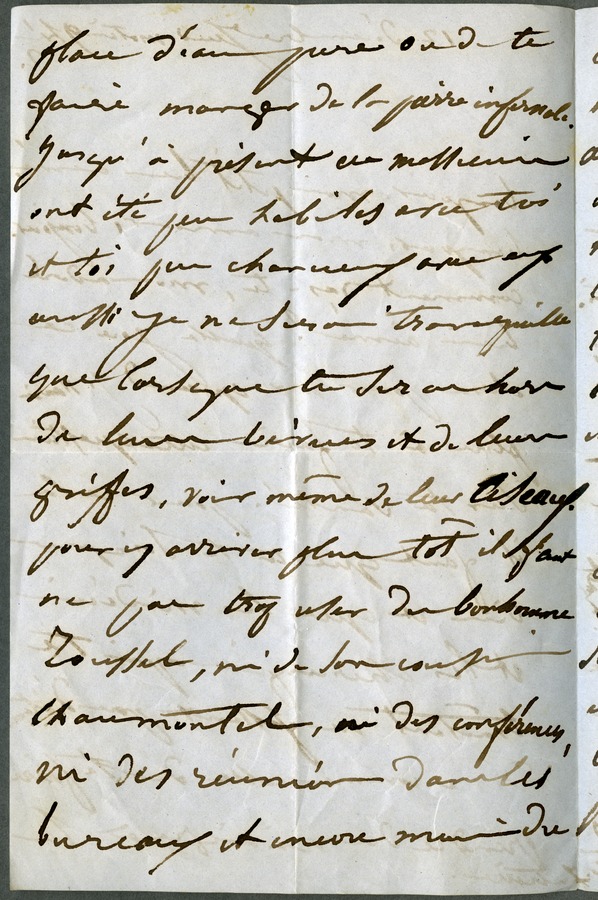 place d'eau pure ou de te
faire manger de la pierre infernale.
Jusqu'à présent ces messieurs
ont été peu habiles avec toi
et toi peu chanceux avec eux
aussi je ne serai tranquille
que lorsque tu seras hors
de leurs et de leurs
griffes, voir même de leur ciseaux.
pour y arriver plus tôt il faut
ne pas trop user du bonhomme
, ni de son cousin
Chaumontel, ni des conférences,
ni des réunions dans les
bureaux et encore moins de